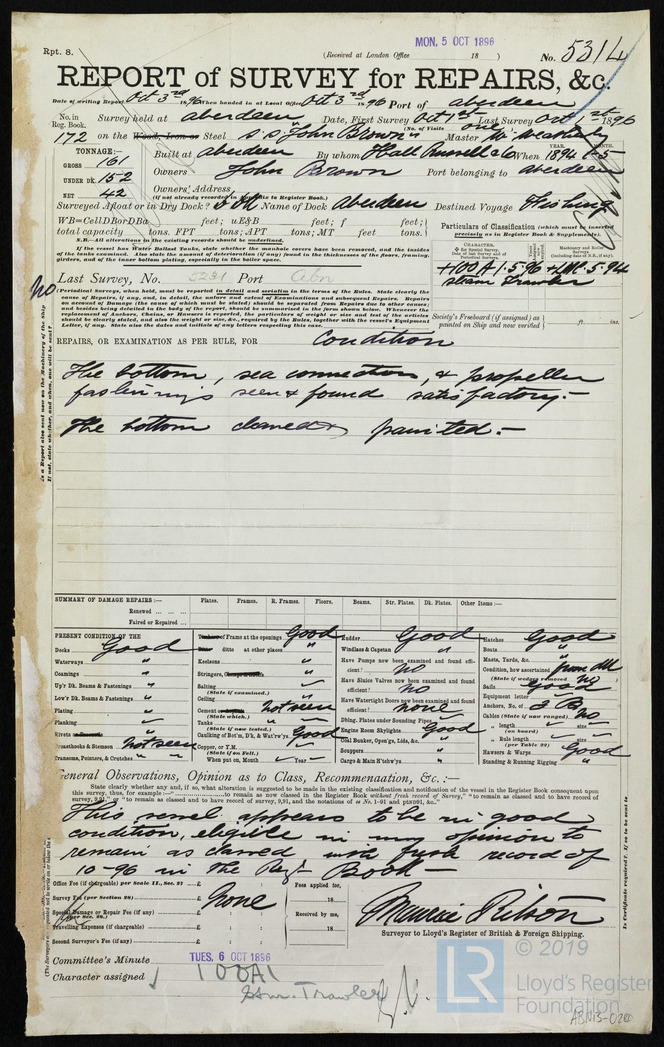 Rpt. 8.
MON. 5 OCT 1896
(Received at London Office 18 )
No. 5314
REPORT of SURVEY for REPAIRS, &c.
Date of writing Report Oct 3rd 1896 When handed in at Local Office Oct 3rd 1896 Port of Aberdeen
No. in Reg. Book. Survey held at Aberdeen Date, First Survey Oct 1st Last Survey Oct 1st 1896
(No. of Visits one)
172 on the Wood, Iron or Steel S.S. "John Brown" Master
TONNAGE:—
GROSS 161
UNDER DK. 152
NET 42
Built at Aberdeen By whom Hall Russell & Co When 1894 5
YEAR. MONTH.
Owners John Brown Port belonging to Aberdeen
Owners' Address
(if not already recorded in Appendix to Register Book.)
Surveyed Afloat or in Dry Dock? Name of Dock Aberdeen Destined Voyage Fishing
WB=CellDBorDBa feet; uE&B feet; f feet;
total capacity tons. FPT tons; APT tons; MT feet tons.
N.B.—All alterations in the existing records should be underlined.
If the vessel has Water Ballast Tanks, state whether the manhole covers have been removed, and the insides
of the tanks examined. Also state the amount of deterioration (if any) found in the thicknesses of the floors, framing,
girders, and of the inner bottom plating, especially in the boiler space.
Particulars of Classification (which must be inserted
precisely as in Register Book & Supplements).
CHARACTER.
+100A1 5.96 +LMC 5.94
Steam Trawler
Last Survey, No. 5231 Port Abn
(Periodical Surveys, when held, must be reported in detail and seriatim in the terms of the Rules. State clearly the
cause of Repairs, if any, and, in detail, the nature and extent of Examinations and subsequent Repairs. Repairs
on account of Damage (the cause of which must be stated) should be separated from Repairs due to other causes;
and besides being detailed in the body of the report, should be summarised in the form shown below. Whenever the
replacement of Anchors, Chains, or Hawsers is reported, the particulars of weight or size and test of the articles
should be clearly stated, and also the weight or size, &c., required by the Rules, together with the vessel's Equipment
Letter, if any. State also the dates and initials of any letters respecting this case.
Society's Freeboard (if assigned) as
painted on Ship and now verified ft. ins.
No
Is a Report also sent now on the Machinery of the Ship
If not, state whether, and when, one will be sent?
REPAIRS, OR EXAMINATION AS PER RULE, FOR Condition
The bottom, sea connections, & propeller
fastenings seen & found satisfactory.—
The bottom cleaned & painted.—
SUMMARY OF DAMAGE REPAIRS:— Plates. Frames. R. Frames. Floors. Beams. Str. Plates. Dk. Plates. Other Items:—
Renewed ... ... ...
Faired or Repaired ...
PRESENT CONDITION OF THE
Decks Good
Waterways "
Coamings "
Up'r Dk. Beams & Fastenings "
Low'r Dk. Beams & Fastenings "
Plating "
Planking "
Rivets "
Breasthooks & Stemson not seen
Transoms, Pointers, & Crutches "
Timbers or Frame at the openings Good
ditto at other places "
Keelsons "
Stringers, "
Salting "
(State if examined.)
Ceiling "
Cement not seen
(State which.)
Tanks "
(State if now tested.)
Caulking of Bot'm, D'k, & Wat'rw'ys Good
Copper, or Y.M.
(State if on Felt.)
When put on, Month Year
Rudder Good
Windlass & Capstan "
Have Pumps now been examined and found efficient? no
Have Sluice Valves now been examined and found efficient? no
Have Watertight Doors now been examined and found efficient? none
Dbling. Plates under Sounding Pipes
Engine Room Skylights Good
Coal Bunker, Open'gs, Lids, &c. "
Scuppers "
Cargo & Main H'tchw'ys "
Hatches Good
Boats "
Masts, Yards, &c. "
Condition, how ascertained from dk
(State if wedges removed no)
Sails Good
Equipment letter
Anchors, No. of 2B
Cables (State if now ranged) no
" length size
(on board)
" Rule length size
(per Table 22)
Hawsers & Warps Good
Standing & Running Rigging "
General Observations, Opinion as to Class, Recommendation, &c.:—
State clearly whether any, if so, what alteration is suggested to be made in the existing classification and notification of the vessel in the Register Book consequent upon
this survey, thus, for example:—" to remain as now classed in the Register Book without fresh record of Survey," "to remain as classed and to have record of
survey, 9,91," or "to remain as classed and to have record of survey, 9,91, and the notations of ss No. 1-91 and ptND91, &c."
This vessel appears to be in good
condition, eligible in my opinion to
remain as classed with fresh record of
10-96 in the Regr. Book—
Office Fee (if chargeable) per Scale II., Sec. 27 ... £ : :
Survey Fee (per Section 28) £ None
Special Damage or Repair Fee (if any) £ : :
(per Sec. 28.)
Travelling Expenses (if chargeable) £ : :
Second Surveyor's Fee (if any) £ : :
Fees applied for,
18
Received by me,
18
Surveyor to Lloyd's Register of British & Foreign Shipping.
Committee's Minute TUES. 6 OCT 1896
Character assigned 100A1
Stm. Trawler
In Certificate required? If so to be sent to
LR
© 2019
Lloyd's Register
Foundation